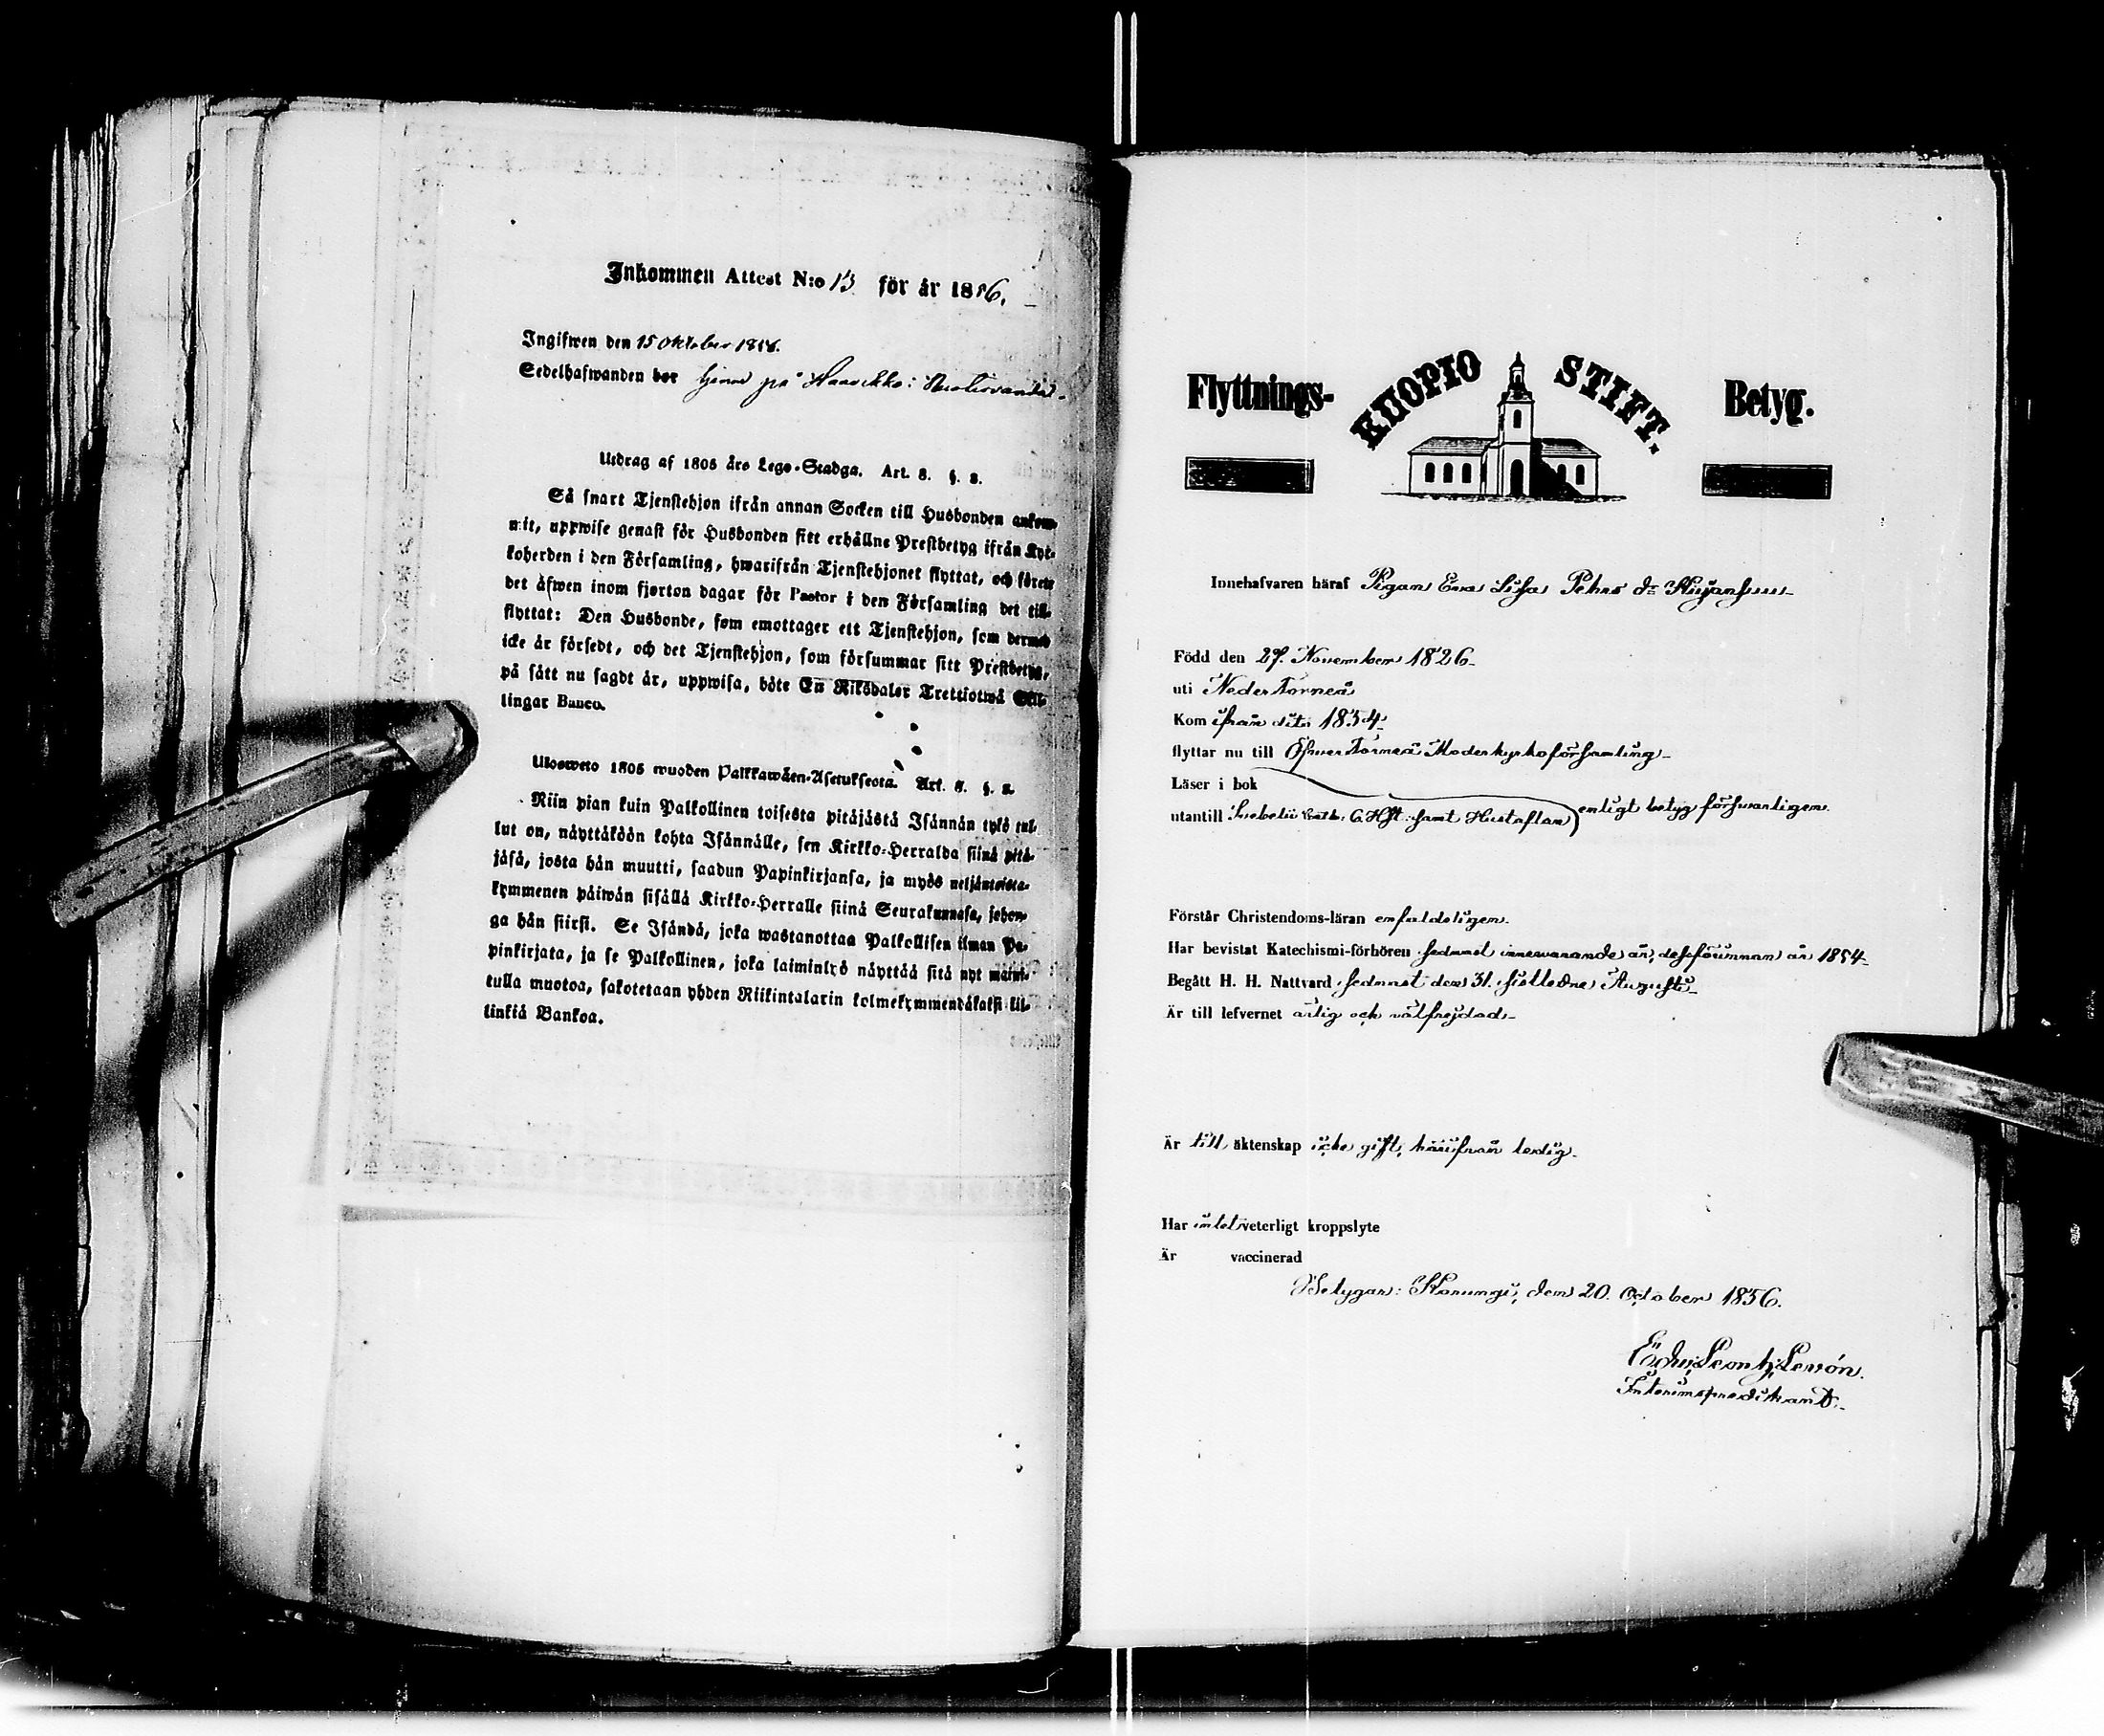 Inkommen Attest N:o 13 för år 1856.
Ingifwen den 15 Oktober 1856.
Sedelhafwanden bor hemma på
Utdrag af 1805 års Lego-Stadga. Art. 8. §. 2.
Så snart Tjenstehjon ifrån annan Socken till Husbonden ankom-
mit, uppwise genast för Husbonden sitt erhållne Prestbetyg ifrån Kyr-
koherden i den Församling, hwarifrån Tjenstehjonet flyttat, och förete
det äfwen inom fjorton dagar för Pastor i den Församling det till-
flyttat: Den Husbonde, som emottager ett Tjenstehjon, som dermed
icke är försedt, och det Tjenstehjon, som försummar sitt Prestbetyg,
på sätt nu sagdt är, uppwisa, böte En Riksdaler Trettiotwå Skil-
lingar Banco.
Uloswеto 1805 wuoden Palkkawäen-Asetuksesta. Art. 8. §. 2.
Niin pian kuin Palkollinen toisesta pitäjästä Isännän tykö tul-
lut on, näyttäköön kohta Isännälle, sen Kirkko-Herralda siinä pitä-
jäsä, josta hän muutti, saadun Papinkirjansa, ja myös neljäntoista-
kymmenen päiwän sisällä Kirkko-Herralle siinä Seurakunnasa, johon-
ga hän siirsi. Se Isändä, joka wastanottaa Palkollisen ilman Pa-
pinkirjata, ja se Palkollinen, joka laiminlyö näyttää sitä nyt maini-
tulla muotoa, sakotetaan yhden Riikintalarin kolmekymmendäkaksi kil-
linkiä Bankoa.
Flyttnings- KUOPIO STIFT. Betyg.
Innehafvaren häraf Pigan Eva Lisa Pehrs dr
Född den 27. November 1826.
uti Neder Torneå
Kom ifrån dito 1854.
flyttar nu till Öfwer Torneå Moderkyrkoförsamling
Läser i bok
utantill Svebelii Cath: 6 Hst: samt Hustaflan enligt betyg försvarligen.
Förstår Christendoms-läran enfaldeligen.
Har bevistat Katechismi-förhören sednast innewarande år, dessförinnan år 1854
Begått H. H. Nattvard sednast den 31. sistledne Augusti
Är till lefvernet ärlig och välfrejdad
Är till äktenskap icke gift, härifrån ledig.
Har intet veterligt kroppslyte
Är vaccinerad
Betygar: Karungi, den 20. October 1856.
Interimspredikant.